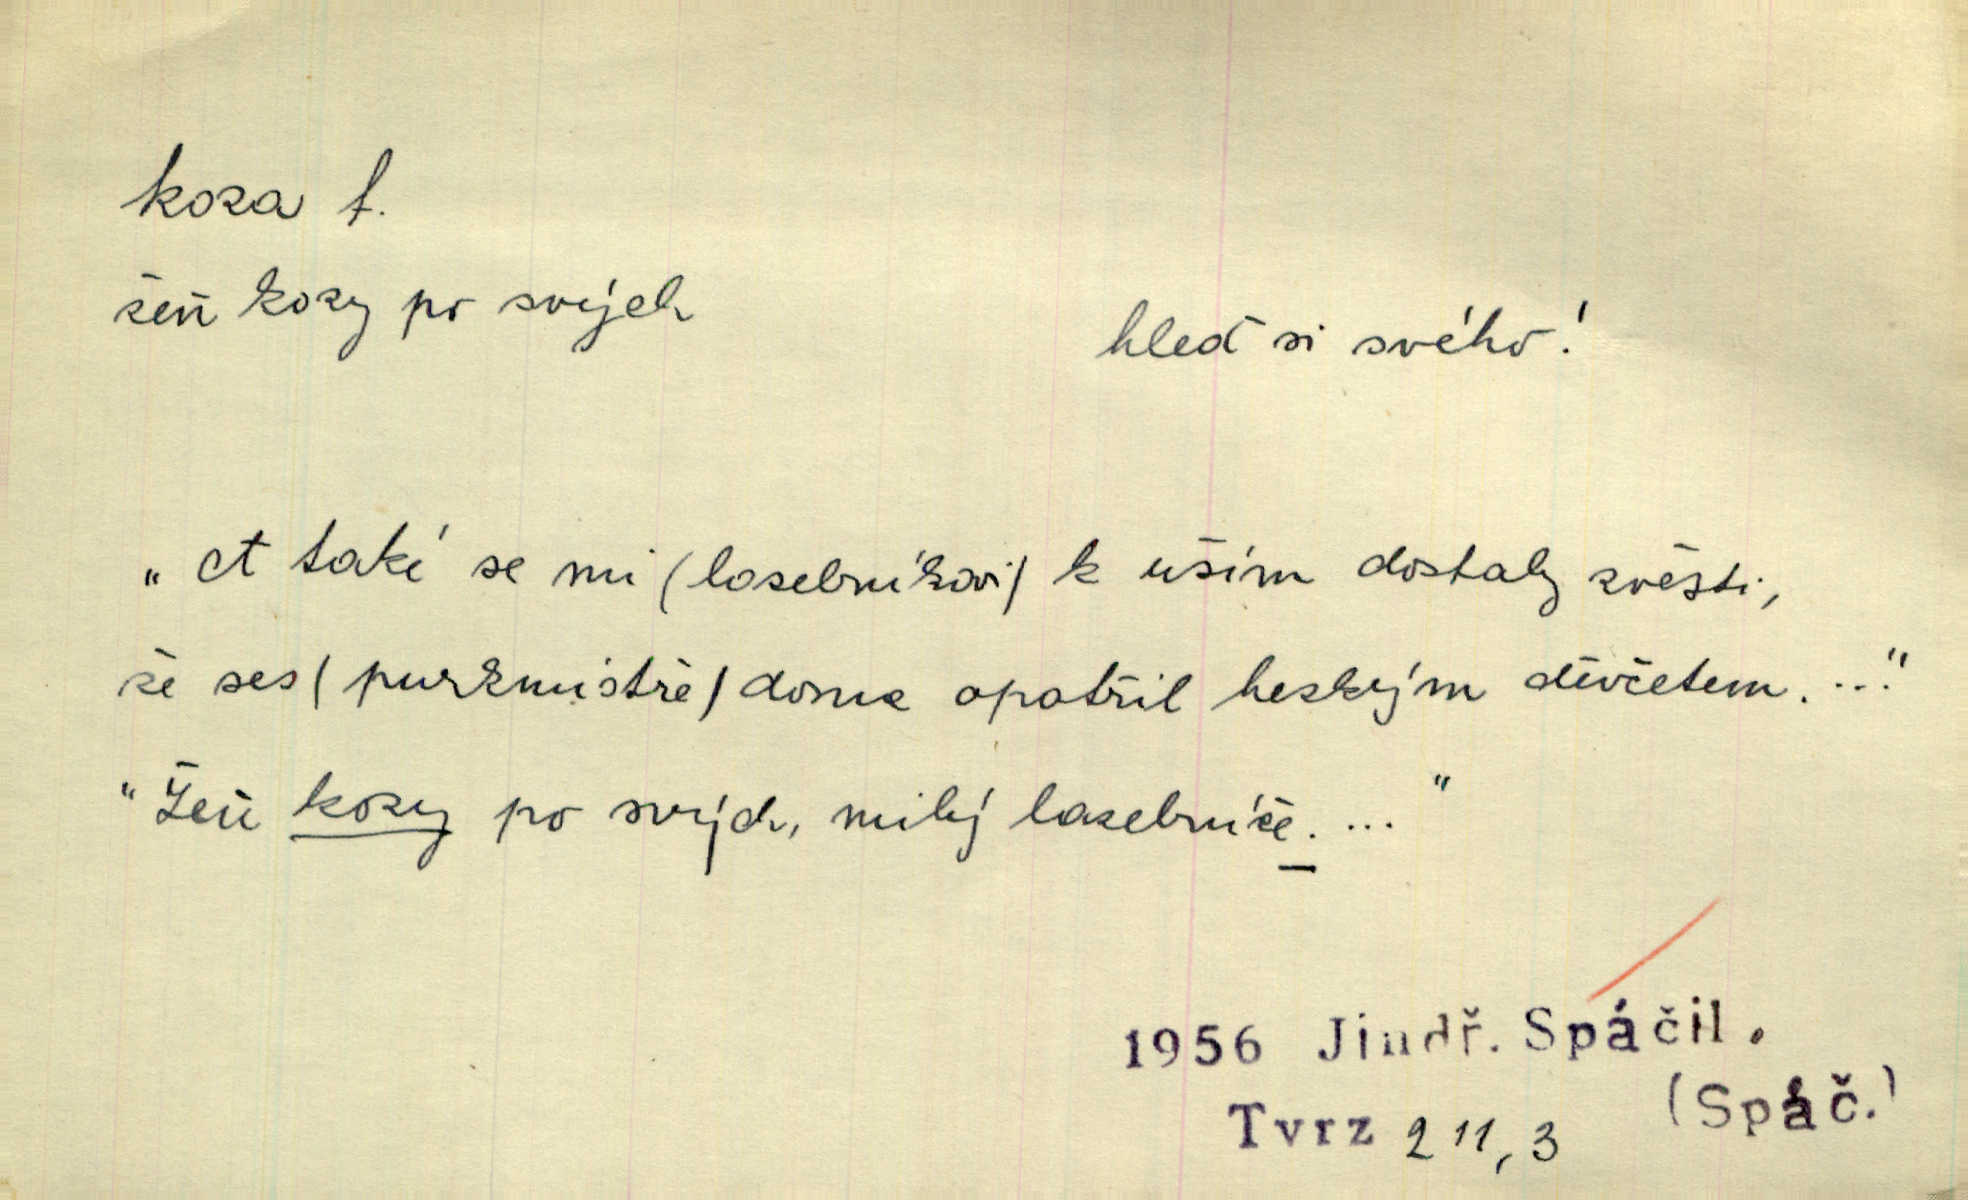 koza f.
žeň kozy po svých
hleď si svého!
„A také se mi (lazebníkovi) k uším dostaly zvěsti,
že ses (purkmistře) doma opatřil hezkým děvčetem. ..."
"Žeň kozy po svých, milý lazebníče. ..."
1956 Jindř. Spáčil.
(Spáč.)
Tvrz 211,3